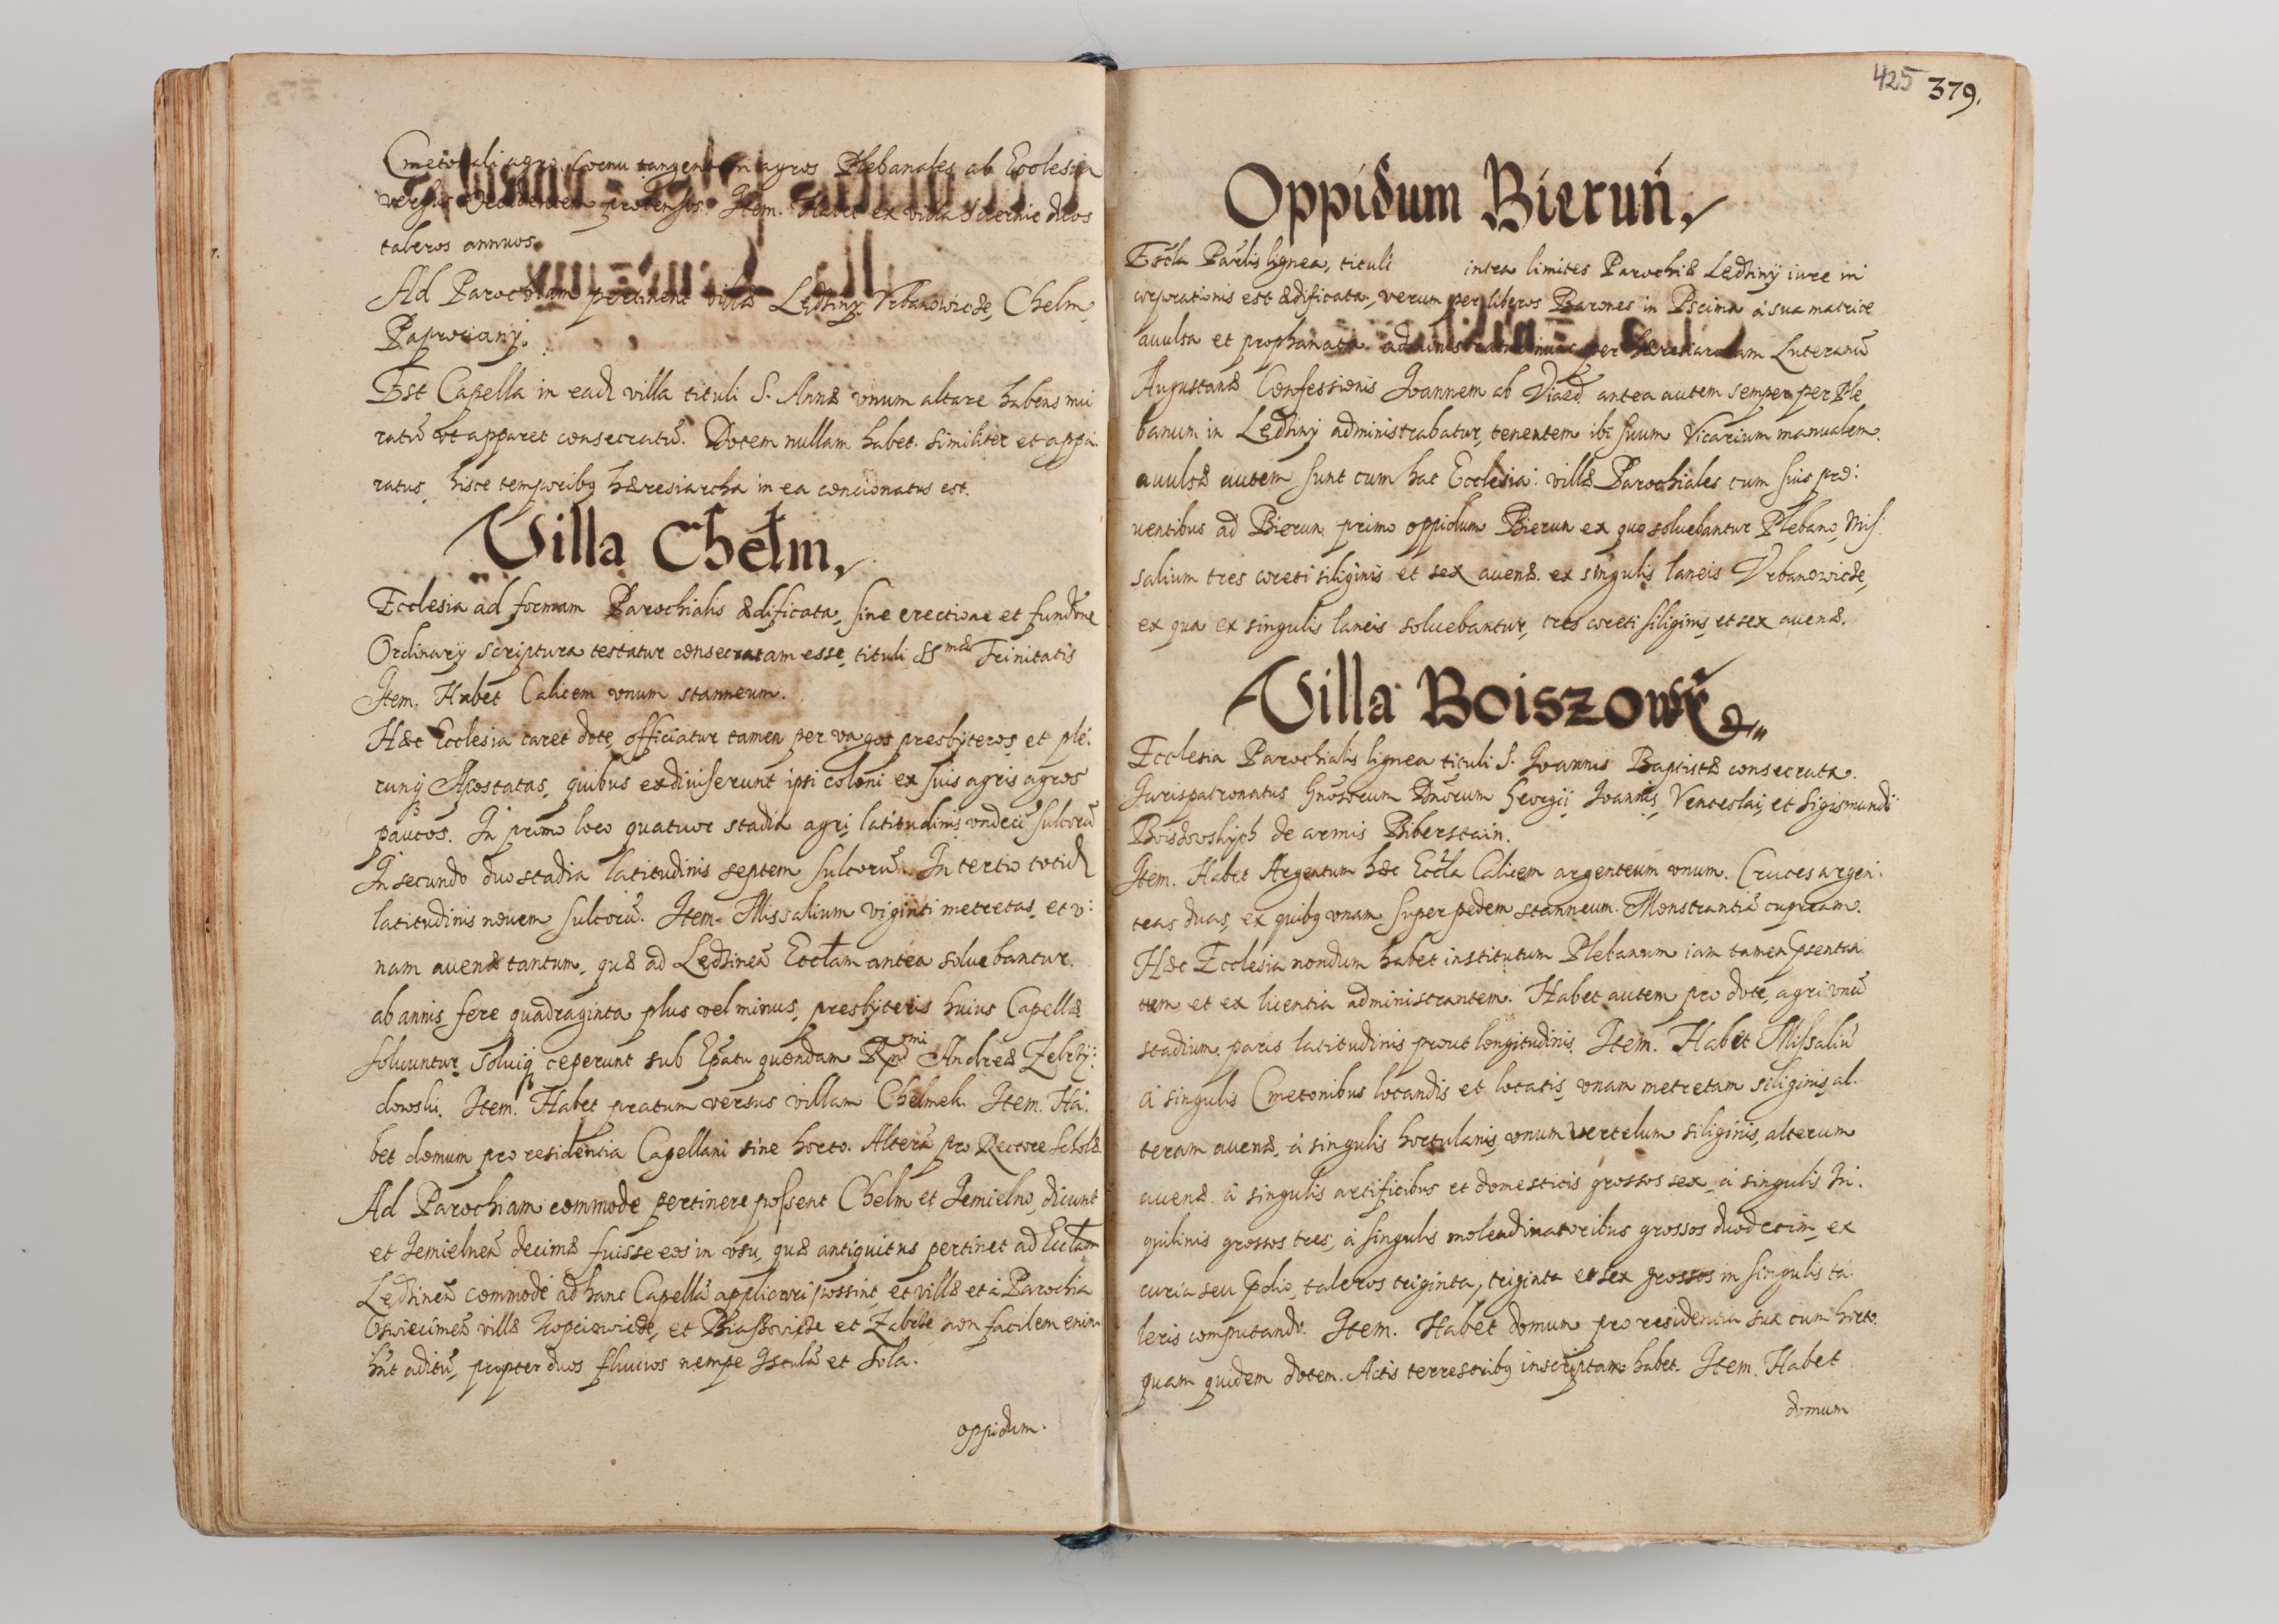 Cmetonali agro, cornu tangentem agros Plebanales ab Ecclesia
versus Occidentem protensos. Item. Habet ex villa duos
taleros annuos.
Ad Parochiam pertinent villæ Lędziny Vrbanowicze, Chelm,
Paprocany.
Est Capella in ead villa tituli S. Annæ vnum altare habens mu
ratū vt apparet consecratū. Dotem nullam habet. similiter et appa
ratus, hisce temporibꝫ hæresiarcha in ea concionatus est.
Villa Chełm,
Ecclesia ad formam Parochialis ædificata, sine erectione et fundōne
Ordinarÿ scriptura testatur consecratam esse, tituli SSmæ Trinitatis
Item. Habet Calicem vnum stanneum.
Hæc Ecclesia caret dote, officiatur tamen per vagos presbÿteros, et ple:
runq̃ Apostatas, quibus exdiuiserunt ipsi coloni ex suis agris agros
paucos. In primo loco quatuor stadia agri, latitudinis vndeci sulcorū
In secundo duo stadia latitudinis septem sulcorū. In tertio totid
latitudinis nouem sulcorū. Item. Missalium viginti metretas, et v:
nam auenæ tantum, quæ ad Lędzineń Eccłam antea soluebantur.
ab annis fere quadraginta plus vel minus, presbÿteris huius Capellæ
soluuntur. Soluiq̃ ceperunt sub Epatu quondam Rndmi Andreæ Zebrzÿ:
dowski. Item. Habet pratum versus villam Chelmek. Item. Ha:
bet domum pro residentia Capellani sine horto. Alterā pro Rectore Scholæ.
Ad Parochiam commode pertinere possent Chelm et Jemielno, dicunt
et Jemielneń decimæ fuisse eos in vsu, quæ antiquitus pertinet ad Eccłam
Lędzineń commodè ad hanc Capellā applicari possint, et villæ et à Parochia
Oswiecimeń villæ Kopciowicze, et Biassowicze et Zabrze non facilem enim
hnt aditū, propter duos fluuios nempe Istulā et Sola.
oppidum.
425 379.
Oppidum Bieruń,
Eccla Parlis lignea, tituli intra limites Parochiæ Lędziny iure in
corporationis est ædificata, verum per liberos Barones in Pscina à sua matrice
auulsa et prophanata administratur nunc per hæresiarcham Luteranū
Augustanæ Confessionis Joannem ab antea autem semper per Ple
banum in Lędziny administrabatur, tenentem ibi suum Vicarium manualem.
auulsæ autem sunt cum hac Ecclesia: villæ Parochiales cum suis pro:
uentibus ad Bierun primo oppidum Bierun ex quo soluebantur Plebano, Mis:
salium tres coreti siliginis et sex auenæ. ex singulis laneis Vrbanowicze,
ex qua ex singulis laneis soluebantur, tres coreti siliginis, et sex auenæ.
Villa Boiszowÿ,
Ecclesia Parochialis lignea tituli S. Joannis Baptistæ consecrata.
Jurispatronatus Gnosorum Dnorum Georgij Joannis, Venceslai, et Sigismundi
Boiszowskÿch de armis Biberstain.
Item. Habet Argentum hæc Eccla Calicem argenteum vnum. Cruces argen:
teas duas, ex quibꝫ vnam super pedem stanneum. Monstrantiā cupream.
Hæc Ecclesia nondum habet institutum Plebanum iam tamen pñsentan:
tem et ex licentia administrantem. Habet autem pro dote, agri vnū
stadium paris latitudinis prout longitudinis. Item. Habet Missaliū
à singulis Cmetonibus locandis et locatis, vnam metretam siliginis, al:
teram auenæ, à singulis hortulanis, vnum vertelum siliginis, alterum
auenæ. à singulis artificibus et domesticis grossos sex, à singulis In:
quilinis grossos tres, à singulis molendinatoribus grossos duodecim, ex
curia seu pdio, taleros triginta, triginta et sex grossos in singulis ta:
leris computando. Item. Habet domum pro residentia sua cum horto.
quam quidem dotem. Actis terrestribꝫ inscriptam habet. Item. Habet
domum